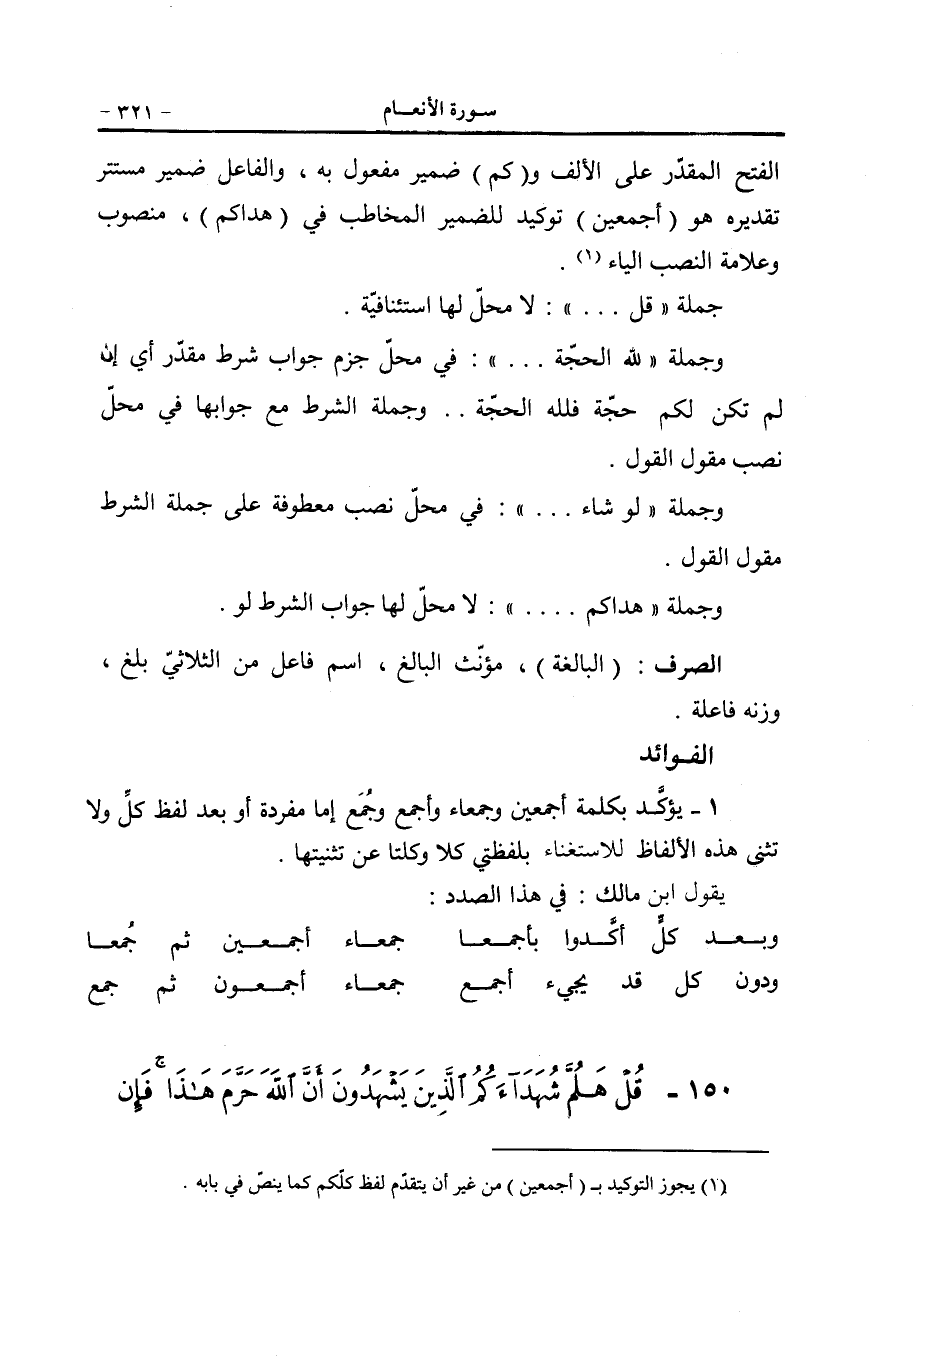 سورة الأنعام - ٣٢١ -
الفتح المقدّر على الألف و(كم) ضمير مفعول به ، والفاعل ضمير مستتر
تقديره هو (أجمعين) توكيد للضمير المخاطب في (هداكم) ، منصوب
وعلامة النصب الياء (١) .
جملة « قل . . . » : لا محلّ لها استئنافيّة .
وجملة « لله الحجّة . . . » : في محلّ جزم جواب شرط مقدّر أي إن
لم تكن لكم حجّة فلله الحجّة . . وجملة الشرط مع جوابها في محلّ
نصب مقول القول .
وجملة « لو شاء . . . » : في محلّ نصب معطوفة على جملة الشرط
مقول القول .
وجملة « هداكم . . . . » : لا محلّ لها جواب الشرط لو .
الصرف : (البالغة) ، مؤنّث البالغ ، اسم فاعل من الثلاثيّ بلغ ،
وزنه فاعلة .
الفوائد
١ - يؤكَّد بكلمة أجمعين وجمعاء وأجمع وجُمَع إما مفردة أو بعد لفظ كلِّ ولا
تثنى هذه الألفاظ للاستغناء بلفظتي كلا وكلتا عن تثنيتها .
يقول ابن مالك : في هذا الصدد :
وبعد كلٍّ أكَّدوا بأجمعا جمعاء أجمعين ثم جُمعا
ودون كل قد يجيء أجمع جمعاء أجمعون ثم جمع
١٥٠ - قُلْ هَلُمَّ شُهَدَآءَكُمُ ٱلَّذِينَ يَشْهَدُونَ أَنَّ ٱللَّهَ حَرَّمَ هَـٰذَا ۖ فَإِن
(١) يجوز التوكيد بـ (أجمعين) من غير أن يتقدّم لفظ كلّكم كما ينصّ في بابه .